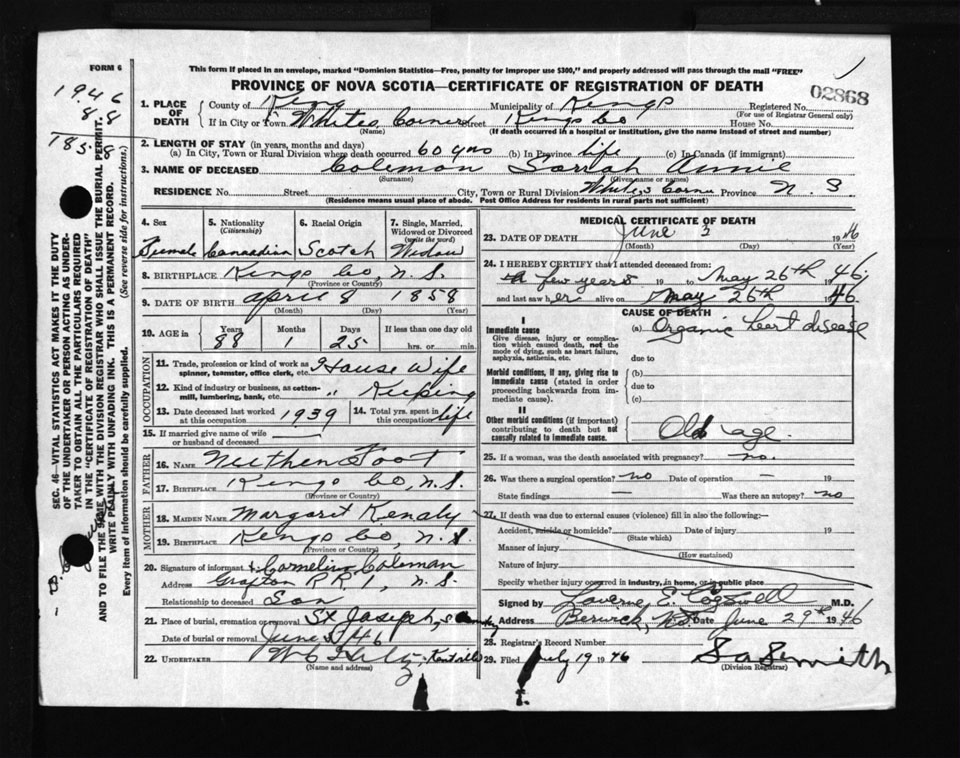 FORM 6
This form if placed in an envelope, marked "Dominion Statistics—Free, penalty for improper use $300," and properly addressed will pass through the mail "FREE"
PROVINCE OF NOVA SCOTIA—CERTIFICATE OF REGISTRATION OF DEATH
1946
88
185
02868
1. PLACE OF DEATH
County of Kings Municipality of Kings Registered No.
(For use of Registrar General only)
If in City or Town Whites Corner Street Kings Co House No.
(Name) (If death occurred in a hospital or institution, give the name instead of street and number)
2. LENGTH OF STAY (in years, months and days)
(a) In City, Town or Rural Division where death occurred 60 yrs (b) In Province life (c) In Canada (if immigrant)
3. NAME OF DECEASED Coleman Sarrah Annie
(Surname) (Given name or names)
RESIDENCE No. Street City, Town or Rural Division Whites Corner Province N. S
(Residence means usual place of abode. Post Office Address for residents in rural parts not sufficient)
4. Sex Female
5. Nationality (Citizenship) Cannadian
6. Racial Origin Scotch
7. Single, Married, Widowed or Divorced (write the word) Widow
8. BIRTHPLACE Kings Co, N. S.
(Province or Country)
9. DATE OF BIRTH April 8 1858
(Month) (Day) (Year)
10. AGE in Years 88 Months 1 Days 25 If less than one day old hrs. or min.
OCCUPATION
11. Trade, profession or kind of work as spinner, teamster, office clerk, etc. House Wife
12. Kind of industry or business, as cotton-mill, lumbering, bank, etc. " Keeping
13. Date deceased last worked at this occupation 1939
14. Total yrs. spent in this occupation life
15. If married give name of wife or husband of deceased
FATHER
16. NAME Foot
17. BIRTHPLACE Kings Co, N.S.
(Province or Country)
MOTHER
18. MAIDEN NAME Margarit Kenaly
19. BIRTHPLACE Kings Co, N. S.
(Province or Country)
20. Signature of informant Cornelius Coleman
Address Grafton RR 1, N. S.
Relationship to deceased Son
21. Place of burial, cremation or removal St Joseph,s
Date of burial or removal June 46
22. UNDERTAKER
(Name and address)
MEDICAL CERTIFICATE OF DEATH
23. DATE OF DEATH June 3 1946
(Month) (Day) (Year)
24. I HEREBY CERTIFY that I attended deceased from:
A few years 19 to May 26th 46
and last saw her alive on May 26th 1946.
CAUSE OF DEATH
I
Immediate cause
Give disease, injury or complication which caused death, not the mode of dying, such as heart failure, asphyxia, asthenia, etc.
(a) Organic heart disease
due to
Morbid conditions, if any, giving rise to immediate cause (stated in order proceeding backwards from immediate cause).
(b)
due to
(c)
II
Other morbid conditions (if important) contributing to death but not causally related to immediate cause.
Old age.
25. If a woman, was the death associated with pregnancy? no.
26. Was there a surgical operation? no Date of operation — 19
State findings — Was there an autopsy? no
27. If death was due to external causes (violence) fill in also the following:—
Accident, suicide or homicide? Date of injury 19
(State which)
Manner of injury
(How sustained)
Nature of injury
Specify whether injury occurred in industry, in home, or in public place
Signed by Laverne E. Cogswell M.D.
Address Berwick, N.S. Date June 29th 1946
28. Registrar's Record Number
29. Filed July 19 1946 Smith
(Division Registrar)
SEC. 46—VITAL STATISTICS ACT MAKES IT THE DUTY
OF THE UNDERTAKER OR PERSON ACTING AS UNDERTAKER TO OBTAIN ALL THE PARTICULARS REQUIRED
IN THE "CERTIFICATE OF REGISTRATION OF DEATH"
(See reverse side for instructions.)
AND TO FILE THE SAME WITH THE DIVISION REGISTRAR WHO SHALL ISSUE THE BURIAL PERMIT.
WRITE PLAINLY WITH UNFADING INK. THIS IS A PERMANENT RECORD.
Every item of information should be carefully supplied.